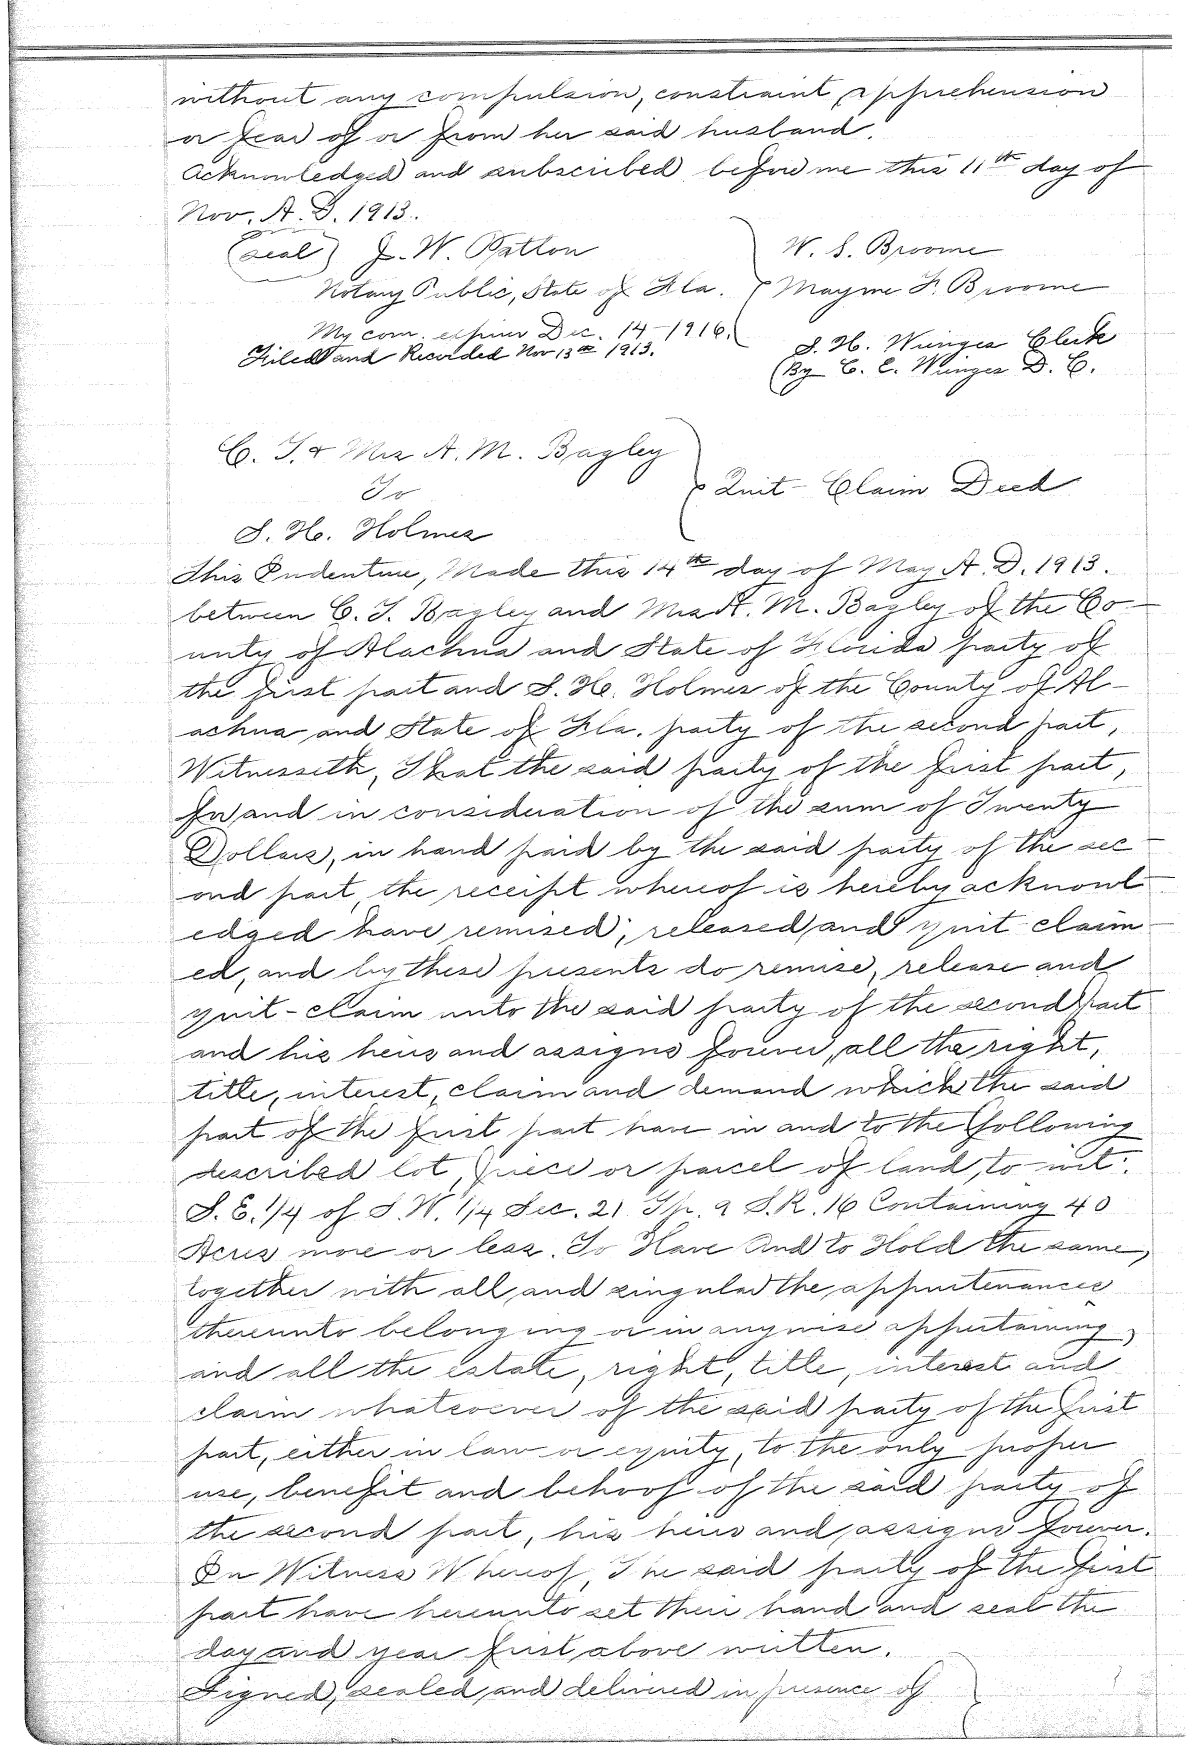 without any compulsion, constraint, apprehension
or fear of or from her said husband.
Acknowledged and subscribed before me this 11th day of
Nov. A. D. 1913.
(seal) J. W. Patton
W. S. Broome
Notary Public, State of Fla.
Mayme F. Broome
My com. expires Dec. 14-1916.
Filed and Recorded Nov 13th 1913.
S. H. Wienges Clerk
By C. E. Wienges D. C.
C. T. & Mrs A. M. Bagley
To
Quit-Claim Deed
S. H. Holmes
This Indenture, Made this 14th day of May A. D. 1913.
between C. T. Bagley and Mrs A. M. Bagley of the Co-
unty of Alachua and State of Florida party of
the first part and S. H. Holmes of the County of Al-
achua and State of Fla. party of the second part,
Witnesseth, That the said party of the first part,
for and in consideration of the sum of Twenty
Dollars, in hand paid by the said party of the sec-
ond part, the receipt whereof is hereby acknowl-
edged have remised, released and quit-claim-
ed, and by these presents do remise, release and
quit-claim unto the said party of the second part
and his heirs and assigns forever, all the right,
title, interest, claim and demand which the said
part of the first part have in and to the following
described lot, piece or parcel of land, to-wit:
S. E. 1/4 of S. W. 1/4 Sec. 21 Tp. 9 S. R. 16 Containing 40
Acres more or less. To Have And to Hold the same,
together with all and singular the appurtenances
thereunto belonging or in anywise appertaining,
and all the estate, right, title, interest and
claim whatsoever of the said party of the first
part, either in law or equity, to the only proper
use, benefit and behoof of the said party of
the second part, his heirs and assigns forever.
In Witness Whereof, The said party of the first
part have hereunto set their hand and seal the
day and year first above written.
Signed, sealed and delivered in presence of